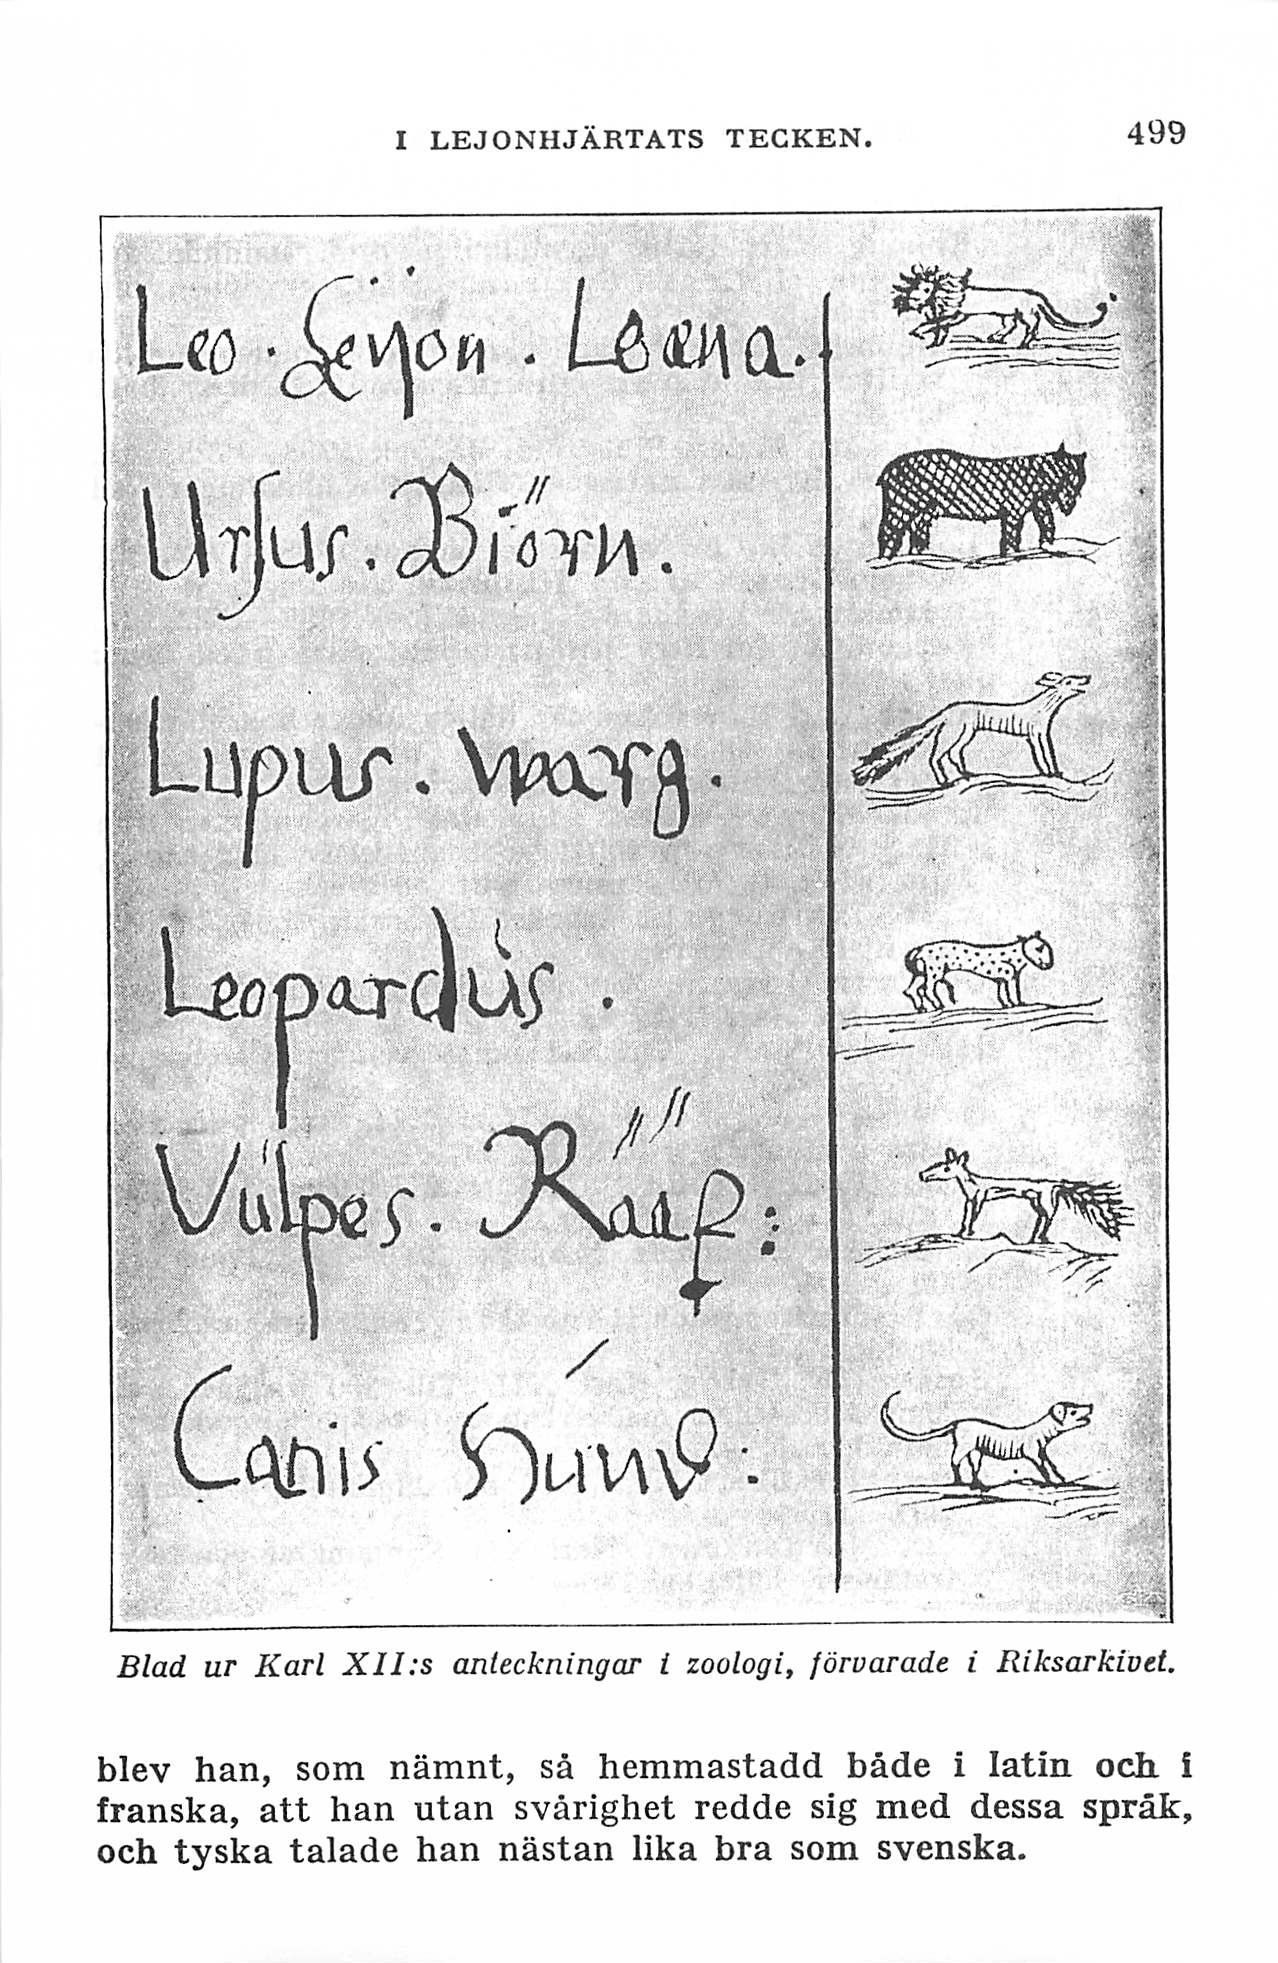 I LEJONHJÄRTATS TECKEN. 499
Leo. Leyon. Leæna.
Ursus. Biörn.
Lupus. warg.
Leopardus.
Vulpes. Rääf:
Canis Hund:
Blad ur Karl XII:s anteckningar i zoologi, förvarade i Riksarkivet.
blev han, som nämnt, så hemmastadd både i latin och i
franska, att han utan svårighet redde sig med dessa språk,
och tyska talade han nästan lika bra som svenska.